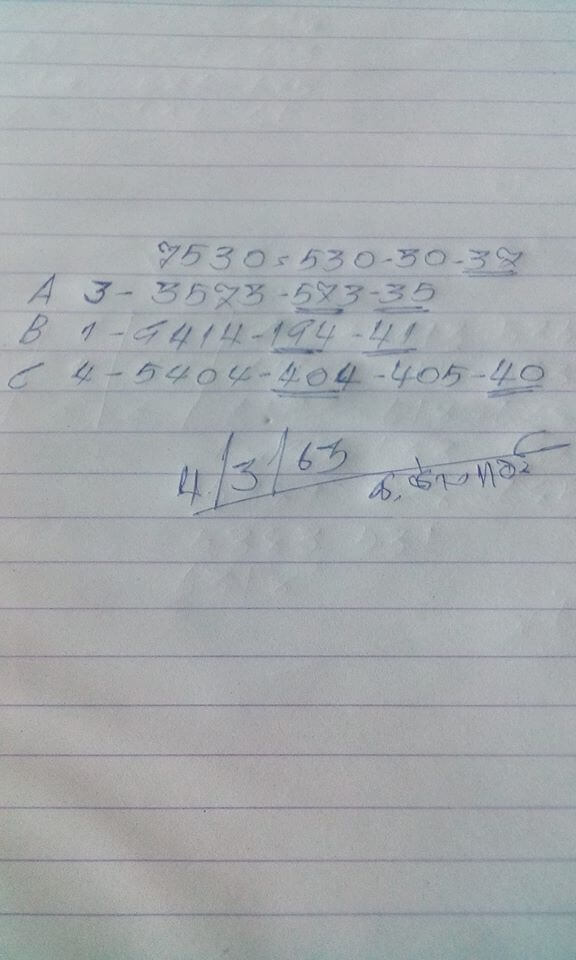 7530 = 530-30-37
A 3 - 3573-573-35
B 1 - 9414-194-41
C 4 - 5404-404-405-40
4/3/63